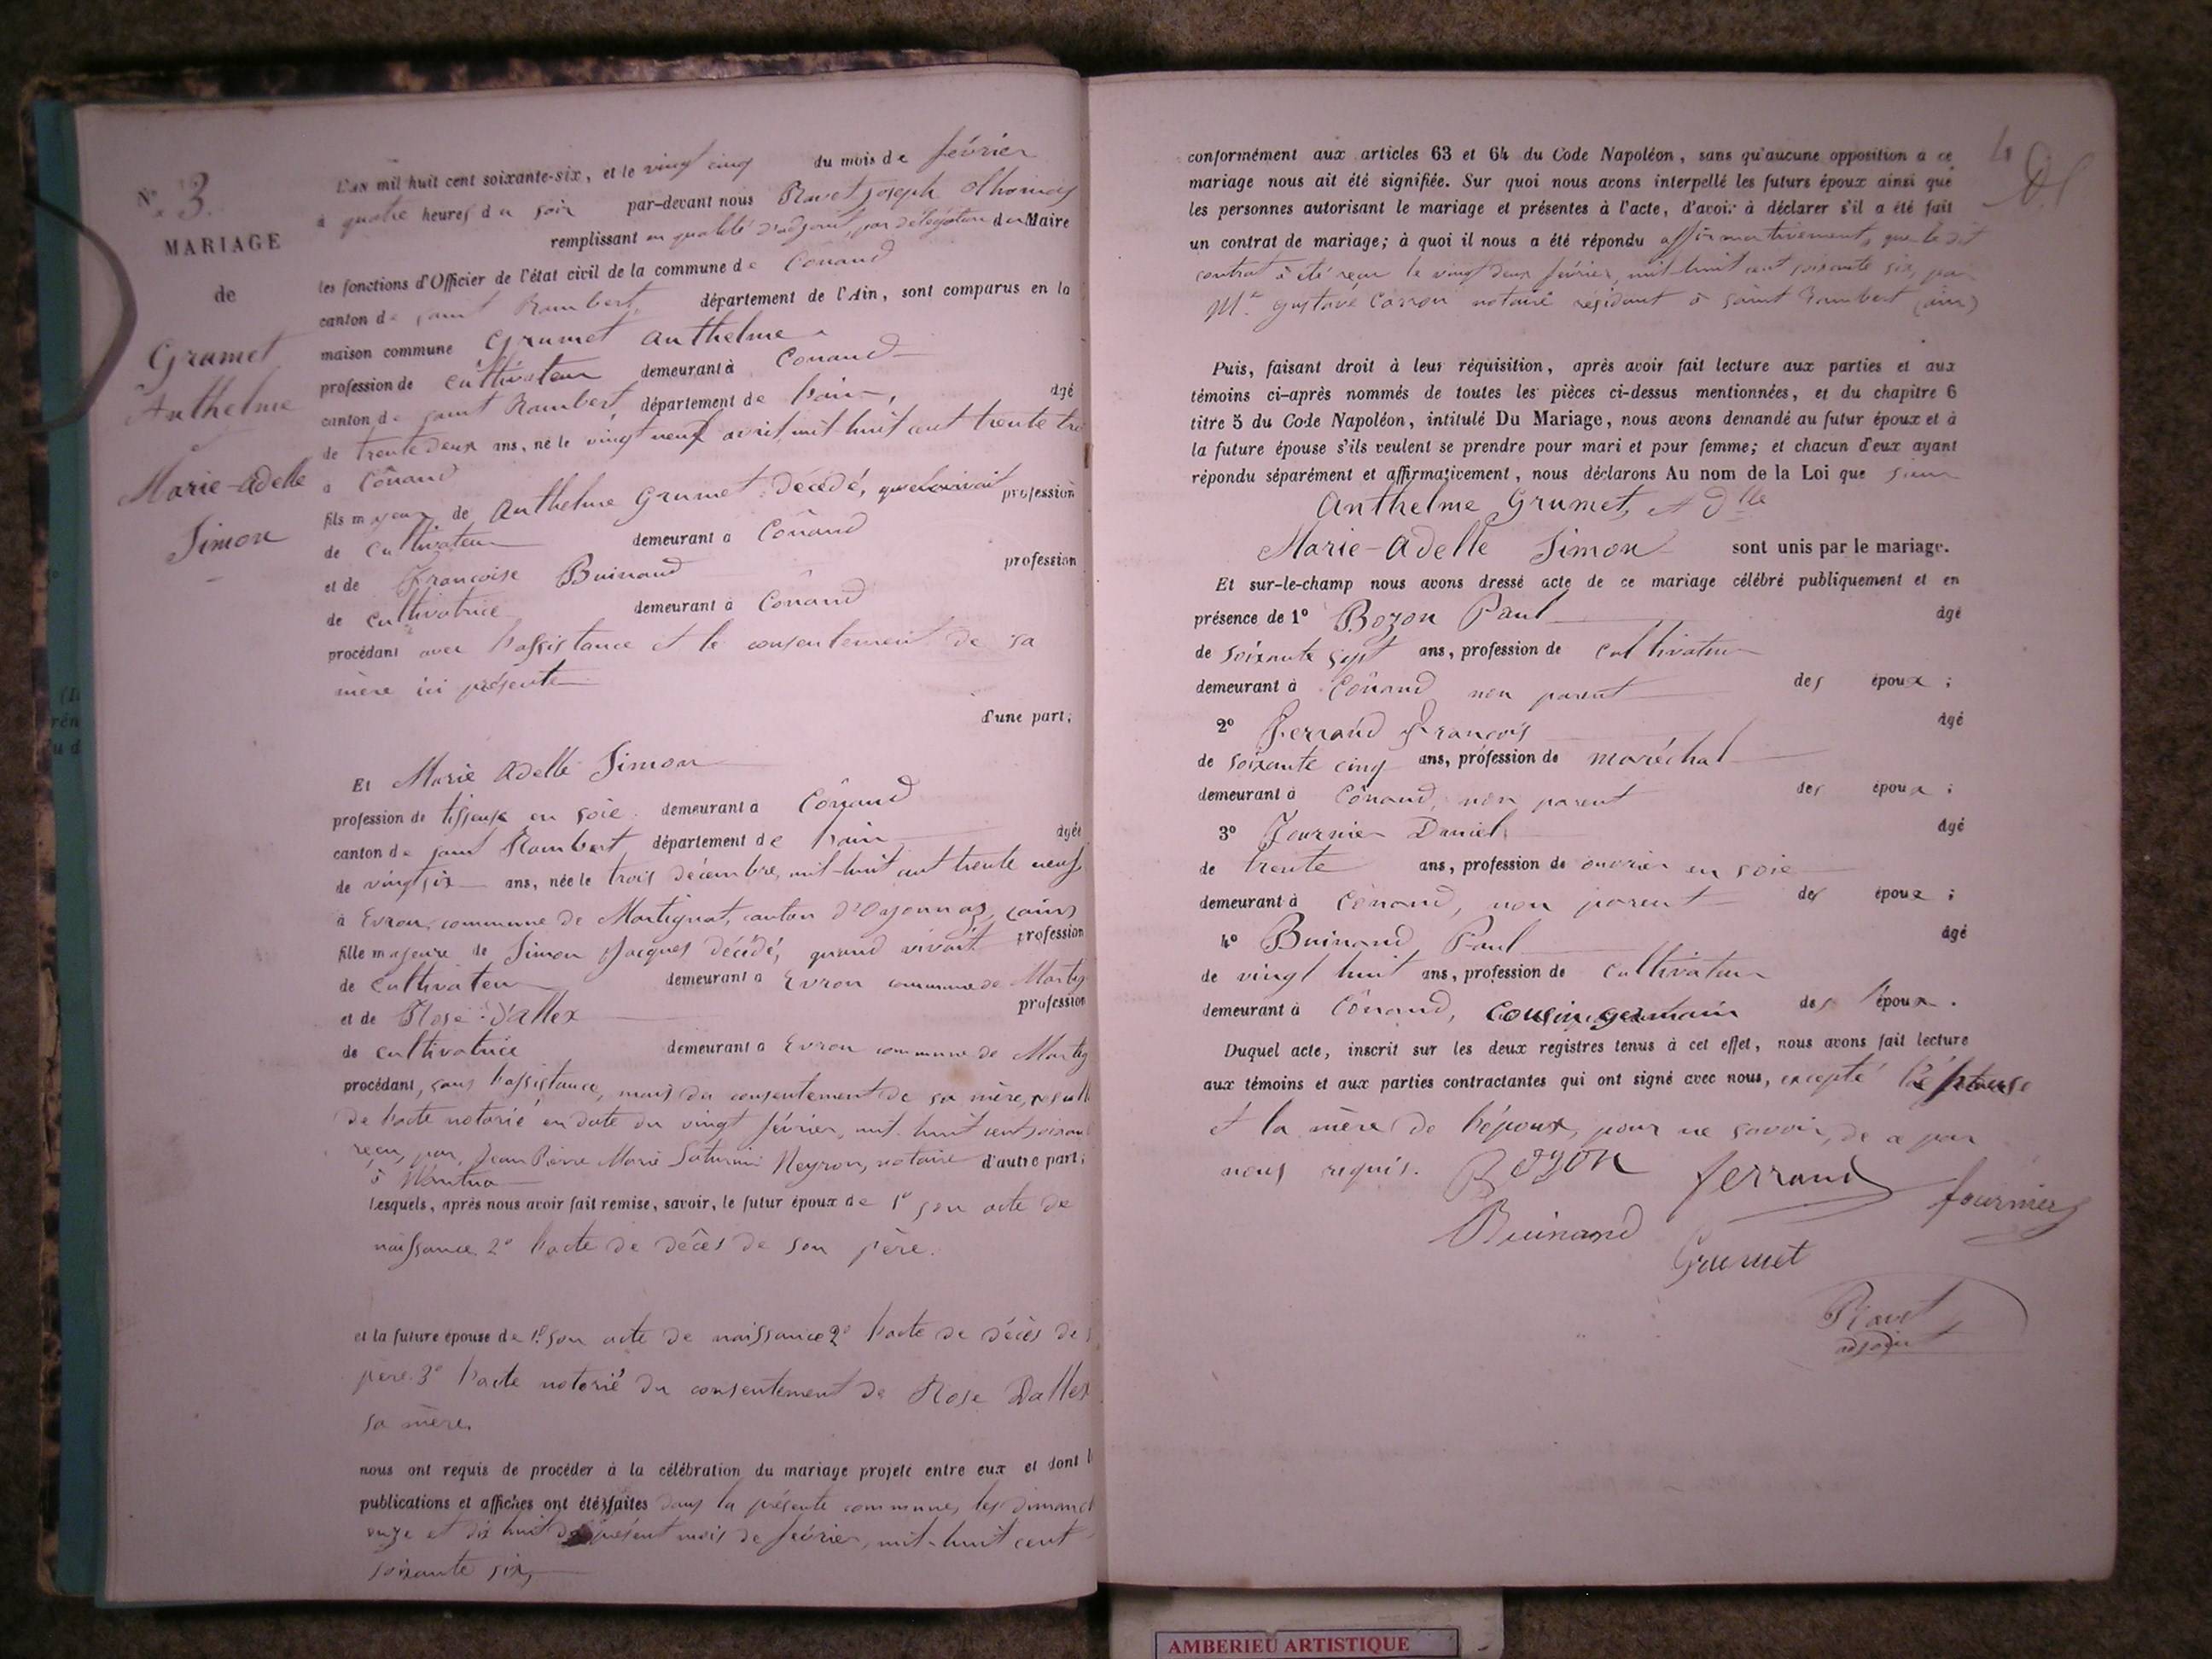 N.° 3.
MARIAGE
de
Grumet
Anthelme
et
Marie-Adelle
Simon
L'an mil huit cent soixante-six, et le vingt cinq du mois de février
à quatre heures du soir par-devant nous Ravet Joseph Anthelme
remplissant en qualité d'adjoint, par délégation du Maire
les fonctions d'Officier de l'état civil de la commune de Conand
canton de saint Rambert, département de l'Ain, sont comparus en la
maison commune Grumet Anthelme
profession de cultivateur demeurant à Conand
canton de saint Rambert, département de l'ain, âgé
de trente deux ans, né le vingt neuf avril, mil huit cent trente tro
à Conand
fils majeur de Anthelme Grumet décédé, quand vivait profession
de cultivateur demeurant à Conand
et de Françoise Buinand profession
de cultivatrice demeurant à Conand
procédant avec l'assistance et le consentement de sa
mère ici présente
d'une part;
Et Marie Adelle Simon
profession de tisseuse en soie demeurant à Conand
canton de saint Rambert département de l'ain âgée
de vingt six ans, née le trois décembre, mil-huit cent trente neuf
à Evron, commune de Martignat, canton d'Oyonnaz, (ain)
fille majeure de Simon Jacques décédé, quand vivait profession
de cultivateur demeurant à Evron commune de Martig
et de Rose Dallex profession
de cultivatrice demeurant à Evron commune de Martig
procédant, sans l'assistance, mais du consentement de sa mère, résult
de l'acte notarié en date du vingt février, mil huit cent soixan
reçu, par, Jean Pierre Marie Saturnin Neyron, notaire d'autre part;
à Nantua
Lesquels, après nous avoir fait remise, savoir, le futur époux de 1° son acte de
naissance 2° l'acte de décès de son père.
et la future épouse de 1° son acte de naissance 2° l'acte de décès de s
père 3° l'acte notorié du consentement de Rose Dallex
sa mère,
nous ont requis de procéder à la célébration du mariage projeté entre eux et dont l
publications et affiches ont été faites dans la présente commune, les dimanch
onze et dix huit du présent mois de février, mil-huit cent
soixante six,
4
conformément aux articles 63 et 64 du Code Napoléon, sans qu'aucune opposition à ce
mariage nous ait été signifiée. Sur quoi nous avons interpellé les futurs époux ainsi que
les personnes autorisant le mariage et présentes à l'acte, d'avoir à déclarer s'il a été fait
un contrat de mariage; à quoi il nous a été répondu affirmativement, que le dit
contrat à été reçu le vingt deux février, mil-huit cent soixante six, par
Me. Gustave Carron notaire résidant à saint Rambert (ain)
Puis, faisant droit à leur réquisition, après avoir fait lecture aux parties et aux
témoins ci-après nommés de toutes les pièces ci-dessus mentionnées, et du chapitre 6
titre 5 du Code Napoléon, intitulé Du Mariage, nous avons demandé au futur époux et à
la future épouse s'ils veulent se prendre pour mari et pour femme; et chacun d'eux ayant
répondu séparément et affirmativement, nous déclarons Au nom de la Loi que sieur
Anthelme Grumet, et dlle
Marie-Adelle Simon sont unis par le mariage.
Et sur-le-champ nous avons dressé acte de ce mariage célébré publiquement et en
présence de 1° Bozon Paul âgé
de soixante sept ans, profession de cultivateur
demeurant à Conand non parent des époux ;
2° Ferrand François âgé
de soixante cinq ans, profession de maréchal
demeurant à Conand, non parent des époux ;
3° Fournier Daniel âgé
de trente ans, profession de ouvrier en soie
demeurant à Conand, non parent des époux ;
4° Buinand Paul âgé
de vingt huit ans, profession de cultivateur
demeurant à Conand, cousin germain de l'époux.
Duquel acte, inscrit sur les deux registres tenus à cet effet, nous avons fait lecture
aux témoins et aux parties contractantes qui ont signé avec nous, excepté l'épouse
et la mère de l'époux, pour ne savoir, de ce par
nous requis. Bozon ferrand fournier
Buinand
Grumet
Ravet
adjoint
AMBERIEU ARTISTIQUE